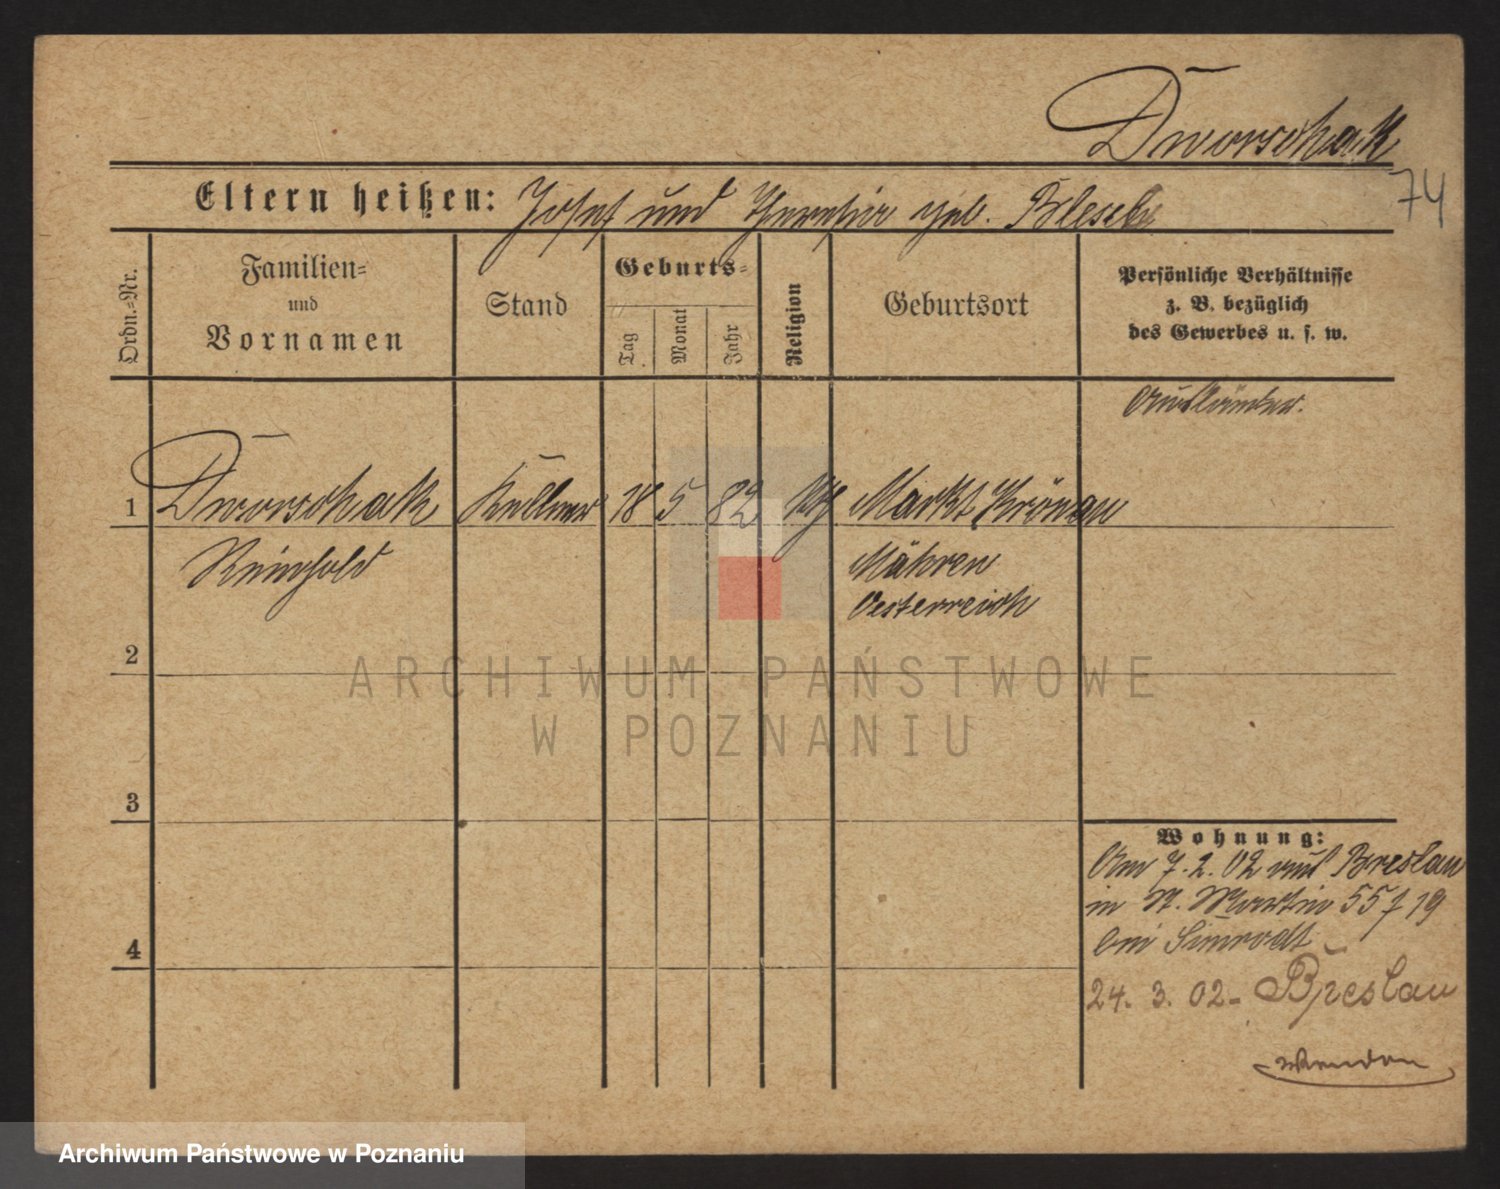 Dworschak
74
Eltern heißen: Josef und Theresia geb.
Ordn.-Nr.
Familien-
und
Vornamen
Stand
Geburts-
Tag
Monat
Jahr
Religion
Geburtsort
Persönliche Verhältnisse
z. B. bezüglich
des Gewerbes u. s. w.
Ausländer.
1 Dworschak Kellner 18 5 82 Markt Krönau
Reinhold
Mähren
Oesterreich
2
3
4
Wohnung:
Am 7.2.02 aus Breslau
in St. Martin 55 19
bei Simrodt
24. 3. 02- Breslau
wenden
ARCHIWUM PAŃSTWOWE
W POZNANIU
Archiwum Państwowe w Poznaniu